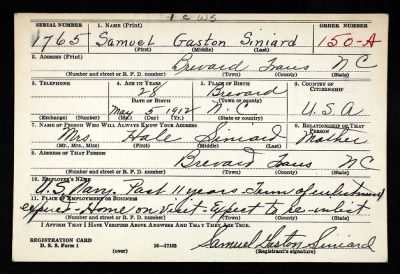 I C W S
SERIAL NUMBER 1. NAME (Print) ORDER NUMBER
1765 Samuel Gaston Siniard 150-A
(First) (Middle) (Last)
2. ADDRESS (Print)
Brevard Trans N C
(Number and street or R. F. D. number) (Town) (County) (State)
3. TELEPHONE 4. AGE IN YEARS 5. PLACE OF BIRTH 6. COUNTRY OF CITIZENSHIP
28 Brevard
DATE OF BIRTH (Town or county)
May 5 1912 N.C U.S.A
(Exchange) (Number) (Mo.) (Day) (Yr.) (State or country)
7. NAME OF PERSON WHO WILL ALWAYS KNOW YOUR ADDRESS 8. RELATIONSHIP OF THAT PERSON
Mrs. Siniard Mother
(Mr., Mrs., Miss) (First) (Middle) (Last)
9. ADDRESS OF THAT PERSON
Brevard Trans NC
(Number and street or R. F. D. number) (Town) (County) (State)
10. EMPLOYER'S NAME
U.S Navy - Past 11 years - Term of enlistment
11. PLACE OF EMPLOYMENT OR BUSINESS
expired - Home on visit - Expect to re-enlist
(Number and street or R. F. D. number) (Town) (County) (State)
I AFFIRM THAT I HAVE VERIFIED ABOVE ANSWERS AND THAT THEY ARE TRUE.
REGISTRATION CARD
D. S. S. Form 1 16-17105 Samuel Gaston Siniard
(over) (Registrant's signature)